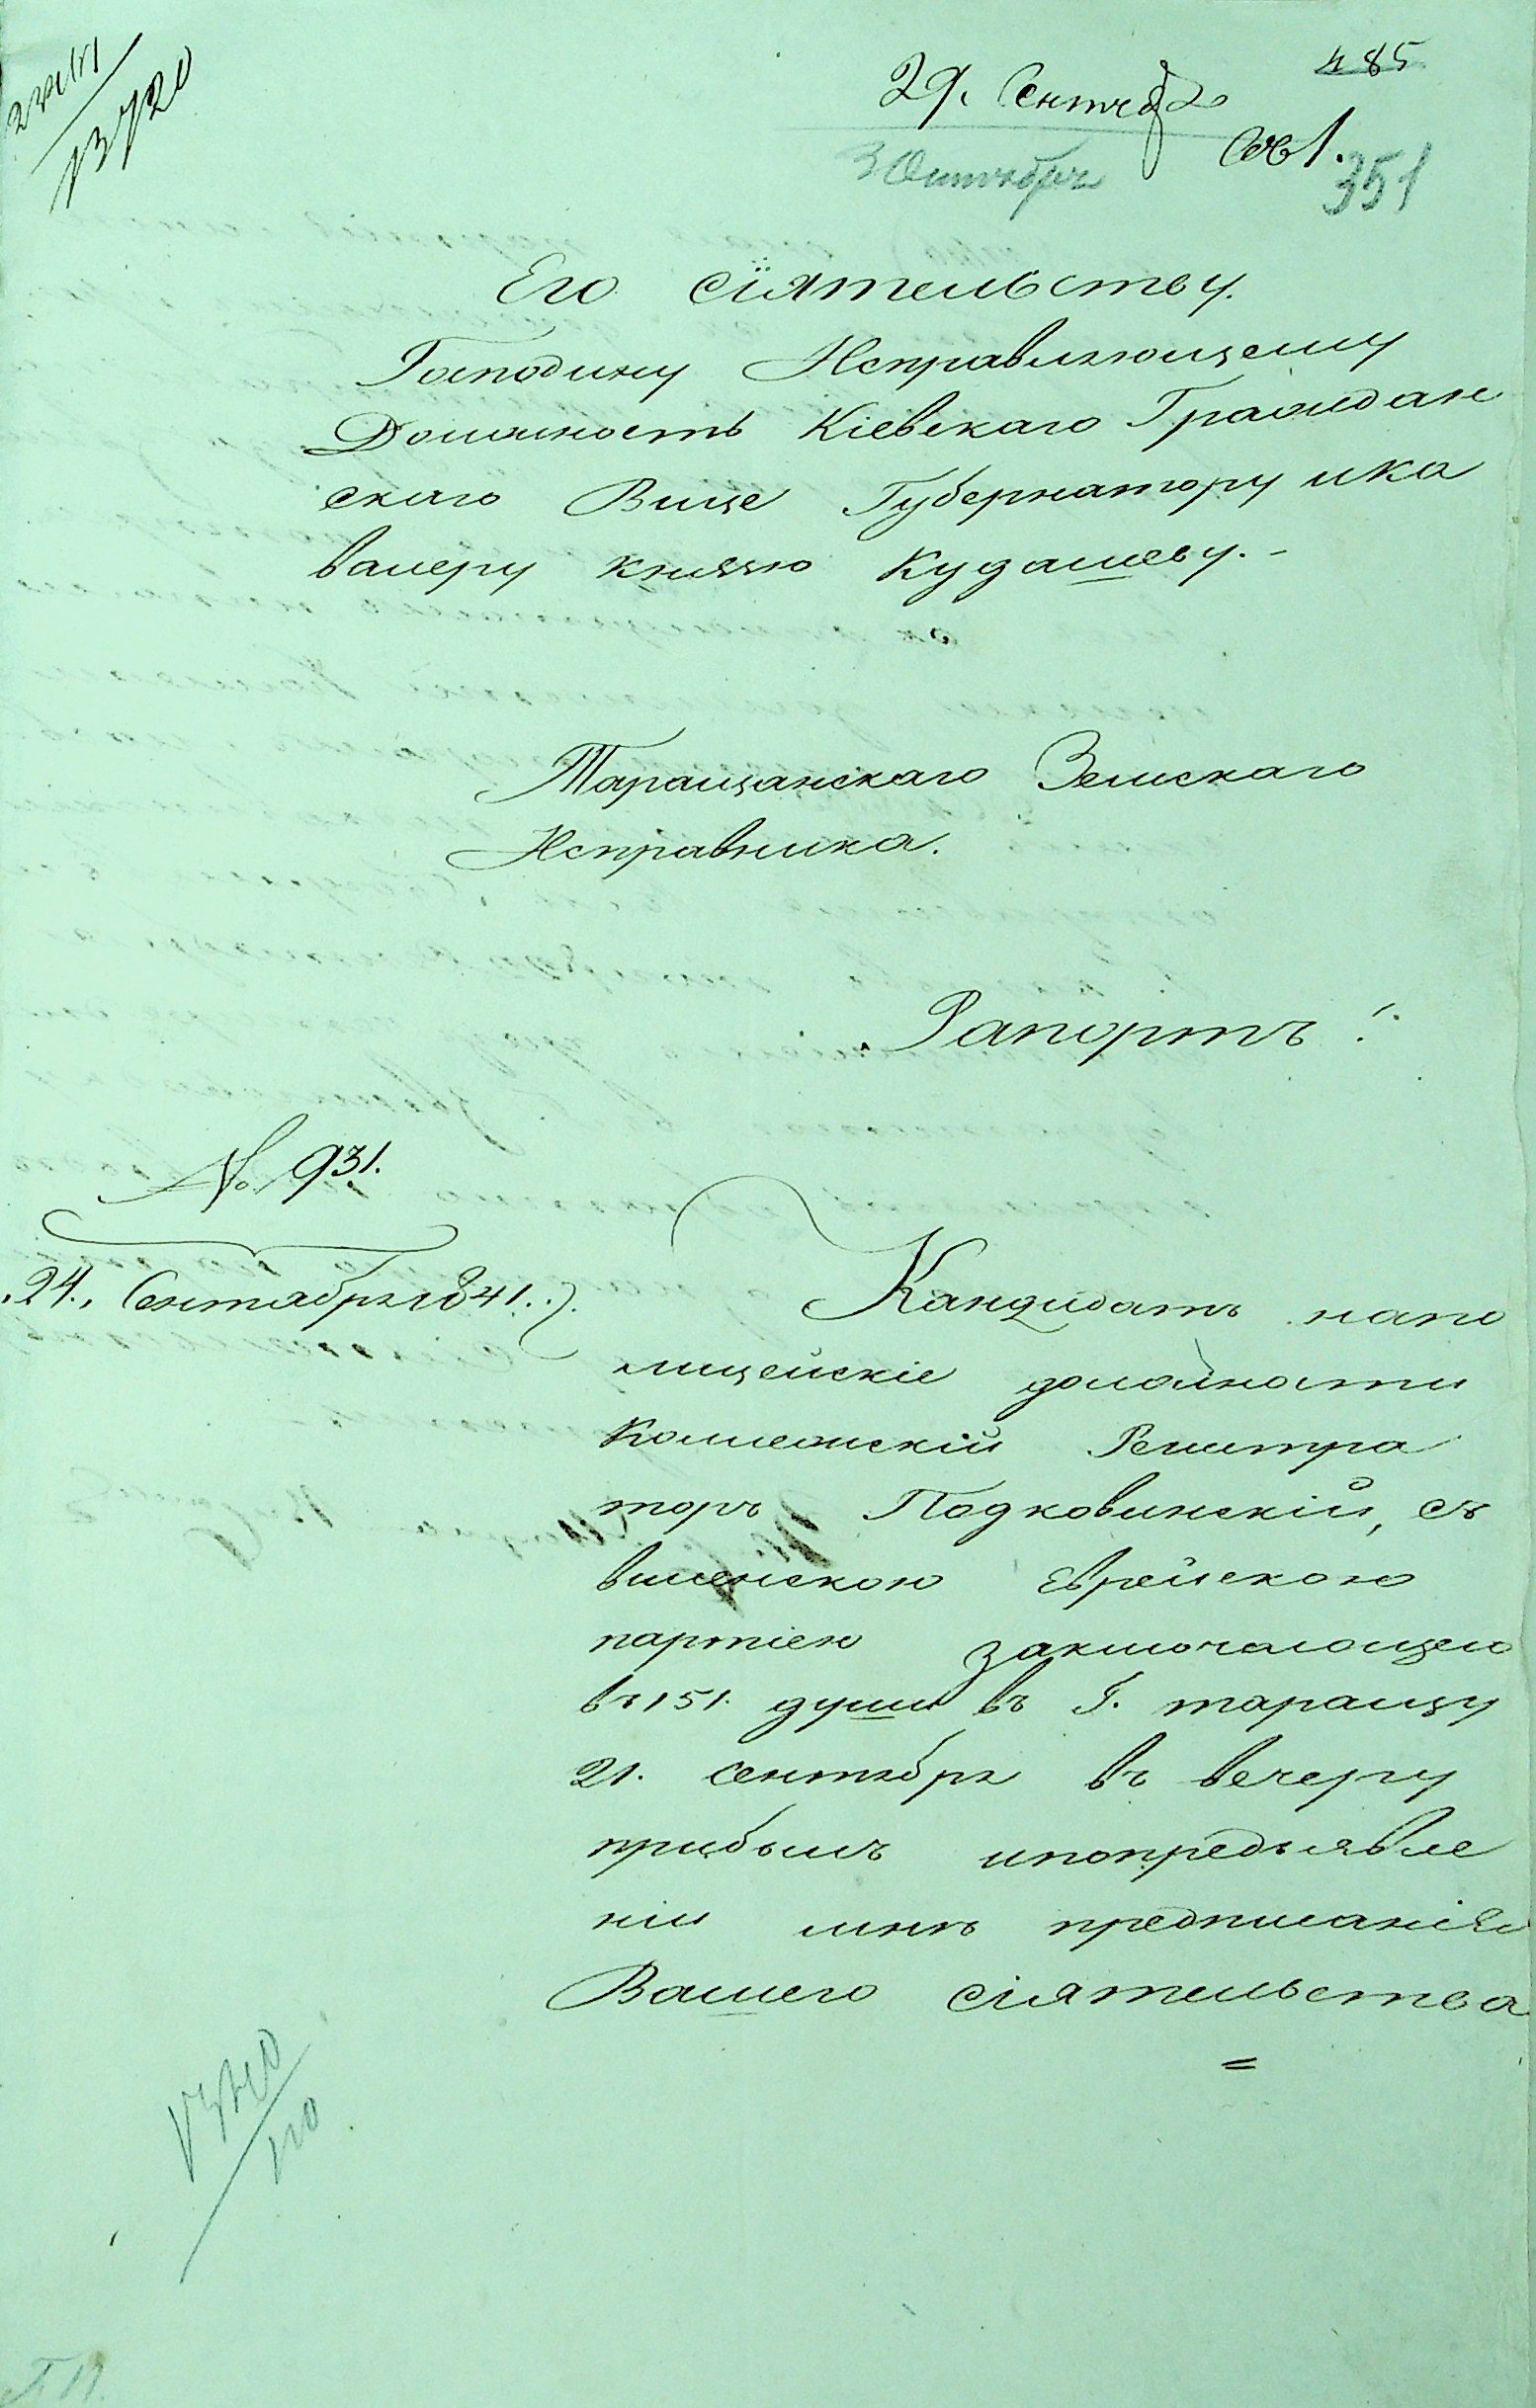 13720
485
29. Сентяб
3 Октября
351
Его сіятельству.
Господину Исправляющему
Должность Кіевскаго Граждан
скаго Вице Губернатору ика
валеру князю Кудашеву. -
Таращанскаго Земскаго
Исправника.
Рапортъ!
№ 931.
24. Сентября 1841.
Кандидатъ напо
лицейскіе должности
Коллежскій Регистра
торъ Подковинскій, съ
виленскою Еврейскою
партіею заключающею
въ 151. души въ Г. таращу
21. сентября въ вечеру
прибылъ ипопредъявле
ніи мнѣ предписанія
Вашего сіятельства
=